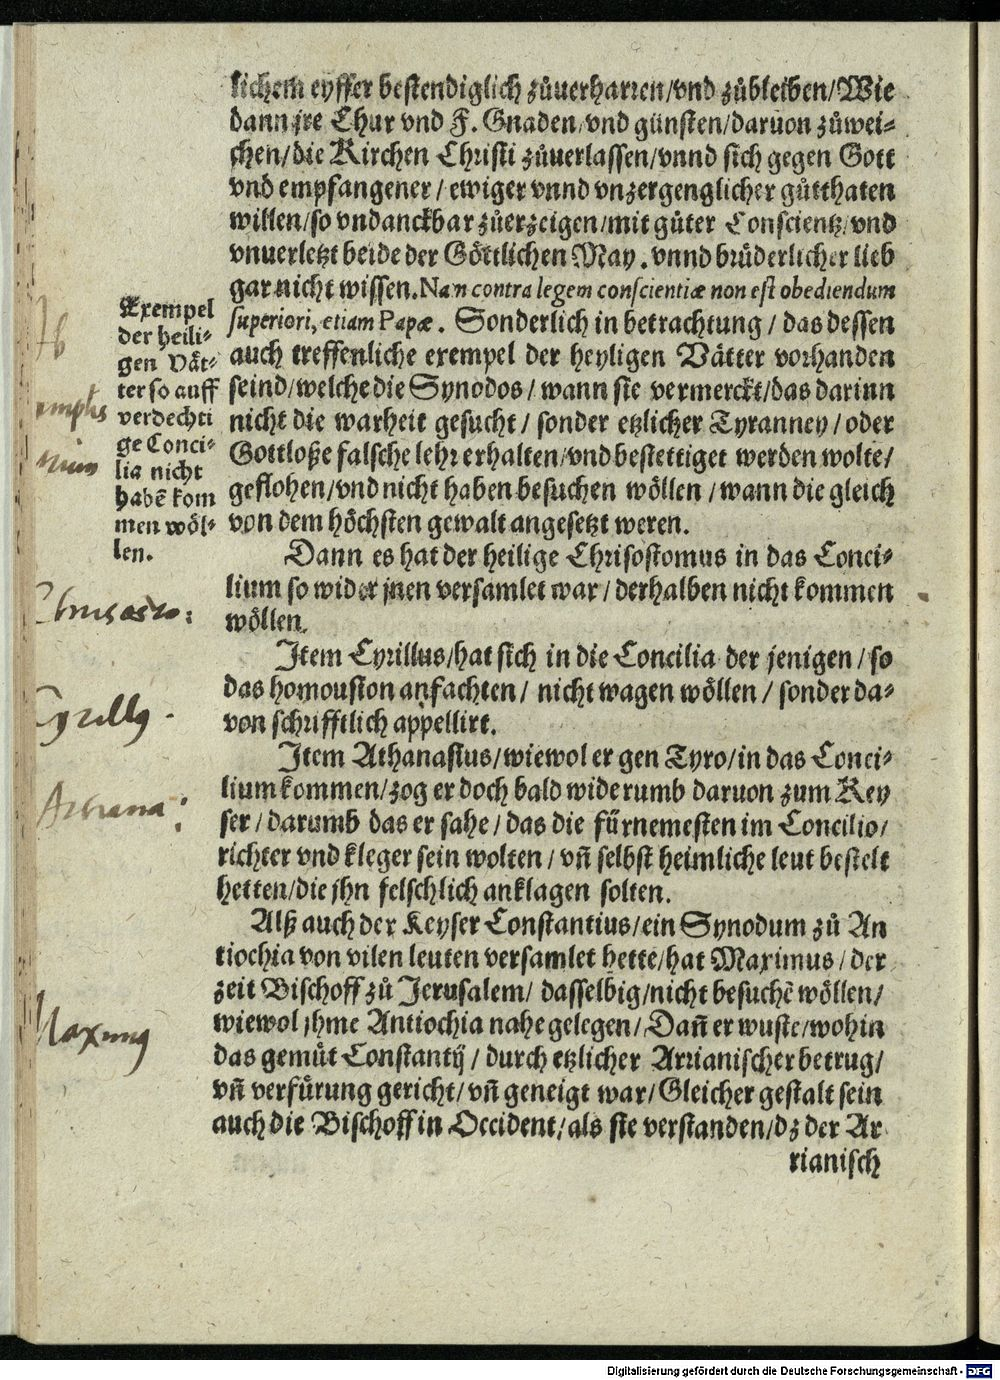 lichem eyffer bestendiglich zůuerharren/vnd zůbleiben/Wie
dann jre Chur vnd F. Gnaden/vnd günsten/daruon zůwei-
chen/die Kirchen Christi zůuerlassen/vnnd sich gegen Gott
vnd empfangener/ewiger vnnd vnzergenglicher gůtthaten
willen/so vndanckbar zůerzeigen/mit gůter Conscientz/vnd
vnuerletzt beide der Göttlichen May. vnnd brüderlicher lieb
gar nicht wissen. Nan contra legem conscientiæ non est obediendum
superiori, etiam Papæ. Sonderlich in betrachtung/das dessen
auch treffenliche exempel der heyligen Vätter vorhanden
seind/welche die Synodos/wann sie vermerckt/das darinn
nicht die warheit gesucht/sonder etzlicher Tyranney/oder
Gottloße falsche lehr erhalten/vnd bestettiget werden wolte/
geflohen/vnd nicht haben besuchen wöllen/wann die gleich
von dem höchsten gewalt angesetzt weren.
Exempel
der heili-
gen Vät-
ter so auff
verdechti
ge Conci-
lia nicht
habē kom
men wöl-
len.
Dann es hat der heilige Chrisostomus in das Conci-
lium so wider jnen versamlet war/derhalben nicht kommen
wöllen.
Chrisosto:
Item Cyrillus/hat sich in die Concilia der jenigen/so
das homousion anfachten/nicht wagen wöllen/sonder da-
von schrifftlich appellirt.
Cyrillꝰ.
Item Athanasius/wiewol er gen Tyro/in das Conci-
lium kommen/zog er doch bald widerumb daruon zum Key
ser/darumb das er sahe/das die fürnemesten im Concilio/
richter vnd kleger sein wolten/vñ selbst heimliche leut bestelt
hetten/die jhn felschlich anklagen solten.
Athana:
Alß auch der Keyser Constantius/ein Synodum zů An
tiochia von vilen leuten versamlet hette/hat Maximus/der
zeit Bischoff zů Jerusalem/dasselbig/nicht besuchē wöllen/
wiewol jhme Antiochia nahe gelegen/Dañ er wuste/wohin
das gemůt Constantij/durch etzlicher Arrianischer betrug/
vñ verfürung gericht/vñ geneigt war/Gleicher gestalt sein
auch die Bischoff in Occident/als sie verstanden/dz der Ar
Maximꝰ
rianisch
Digitalisierung gefördert durch die Deutsche Forschungsgemeinschaft - DFG